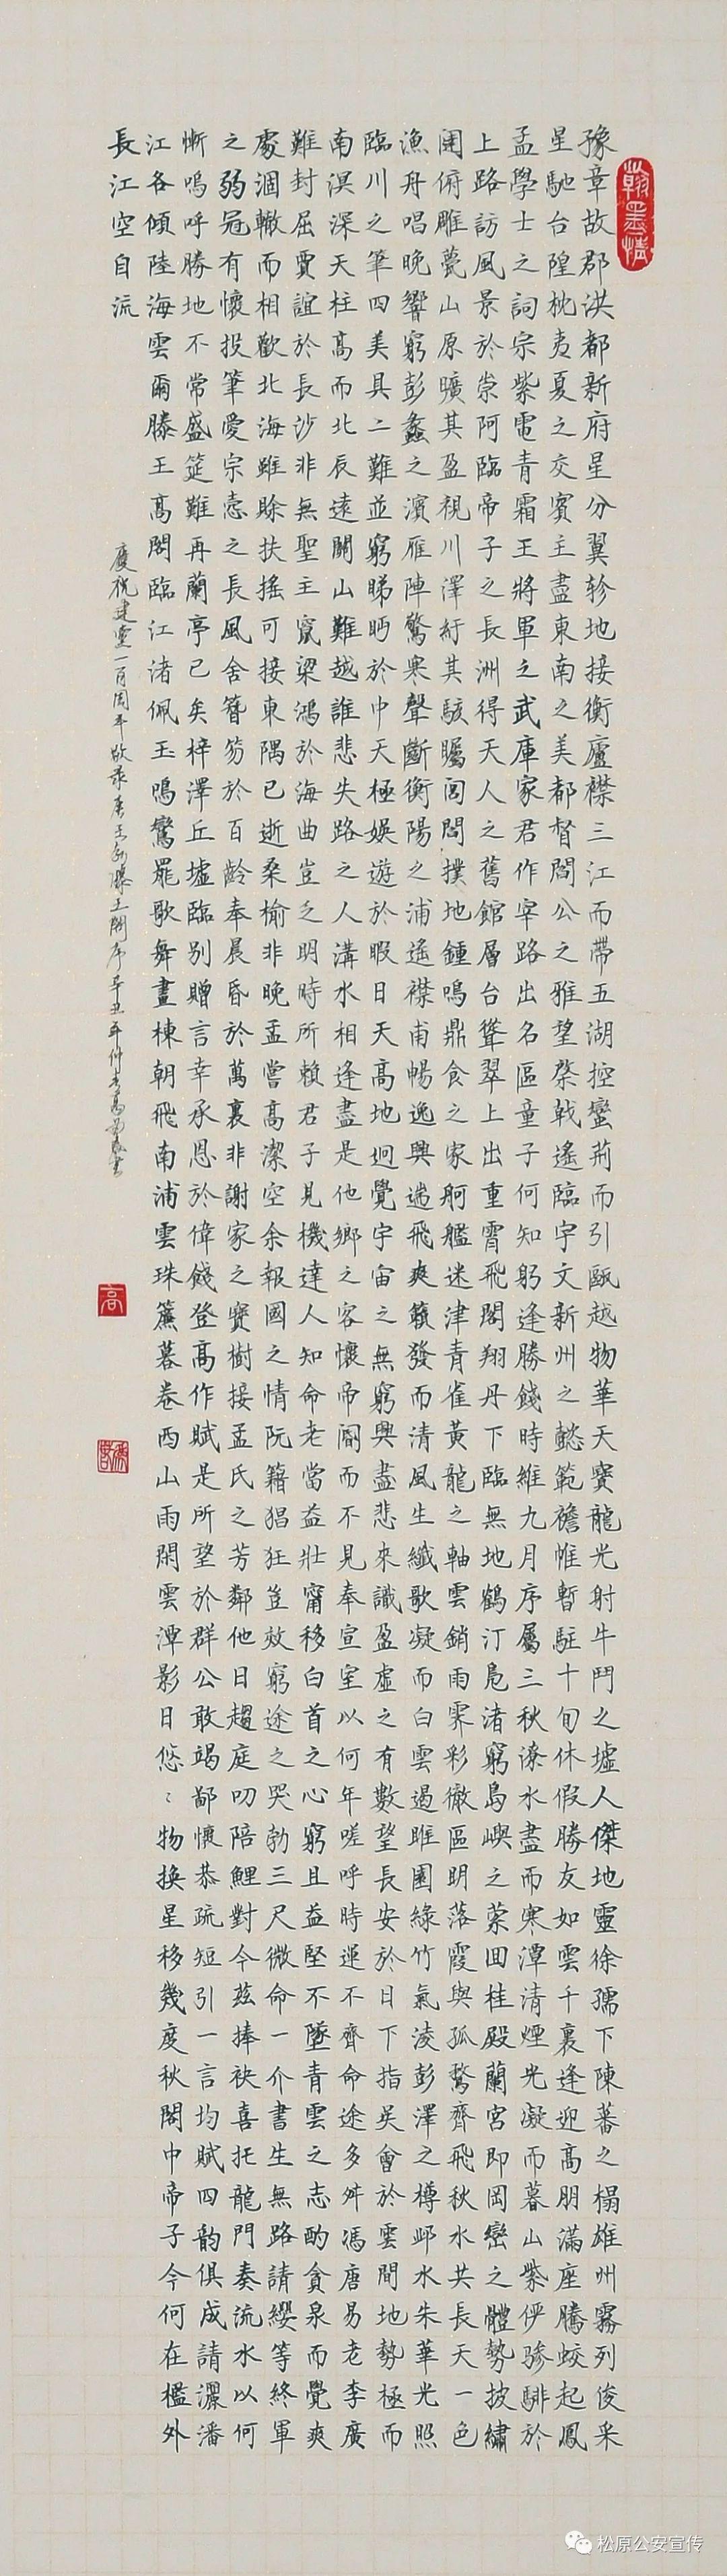 翰墨情
豫章故郡洪都新府星分翼軫地接衡廬襟三江而帶五湖控蠻荊而引甌越物華天寶龍光射牛鬥之墟人傑地靈徐孺下陳蕃之榻雄州霧列俊采
星馳台隍枕夷夏之交賓主盡東南之美都督閻公之雅望棨戟遙臨宇文新州之懿範襜帷暫駐十旬休假勝友如雲千裏逢迎高朋滿座騰蛟起鳳
孟學士之詞宗紫電青霜王將軍之武庫家君作宰路出名區童子何知躬逢勝餞時維九月序屬三秋潦水盡而寒潭清煙光凝而暮山紫儼驂騑於
上路訪風景於崇阿臨帝子之長洲得天人之舊館層台聳翠上出重霄飛閣翔丹下臨無地鶴汀鳧渚窮島嶼之縈回桂殿蘭宮即岡巒之體勢披繡
闥俯雕甍山原曠其盈視川澤紆其駭矚閭閻撲地鍾鳴鼎食之家舸艦迷津青雀黃龍之軸雲銷雨霽彩徹區明落霞與孤鶩齊飛秋水共長天一色
漁舟唱晚響窮彭蠡之濱雁陣驚寒聲斷衡陽之浦遙襟甫暢逸興遄飛爽籟發而清風生纖歌凝而白雲遏睢園綠竹氣淩彭澤之樽鄴水朱華光照
臨川之筆四美具二難並窮睇眄於中天極娛遊於暇日天高地迥覺宇宙之無窮興盡悲來識盈虛之有數望長安於日下指吳會於雲間地勢極而
南溟深天柱高而北辰遠關山難越誰悲失路之人溝水相逢盡是他鄉之客懷帝閽而不見奉宣室以何年嗟呼時運不齊命途多舛馮唐易老李廣
難封屈賈誼於長沙非無聖主竄梁鴻於海曲豈乏明時所賴君子見機達人知命老當益壯甯移白首之心窮且益堅不墜青雲之志酌貪泉而覺爽
處涸轍而相歡北海雖賒扶搖可接東隅已逝桑榆非晚孟嘗高潔空余報國之情阮籍猖狂豈效窮途之哭勃三尺微命一介書生無路請纓等終軍
之弱冠有懷投筆愛宗愨之長風舍簪笏於百齡奉晨昏於萬裏非謝家之寶樹接孟氏之芳鄰他日趨庭叨陪鯉對今茲捧袂喜托龍門奏流水以何
慚嗚呼勝地不常盛筵難再蘭亭已矣梓澤丘墟臨別贈言幸承恩於偉餞登高作賦是所望於群公敢竭鄙懷恭疏短引一言均賦四韻俱成請灑潘
江各傾陸海雲爾滕王高閣臨江渚佩玉鳴鸞罷歌舞畫棟朝飛南浦雲珠簾暮卷西山雨閑雲潭影日悠〻物換星移幾度秋閣中帝子今何在檻外
長江空自流
慶祝建黨一百周年敬录唐王勃滕王閣序辛丑年仲春高書
高
松原公安宣传